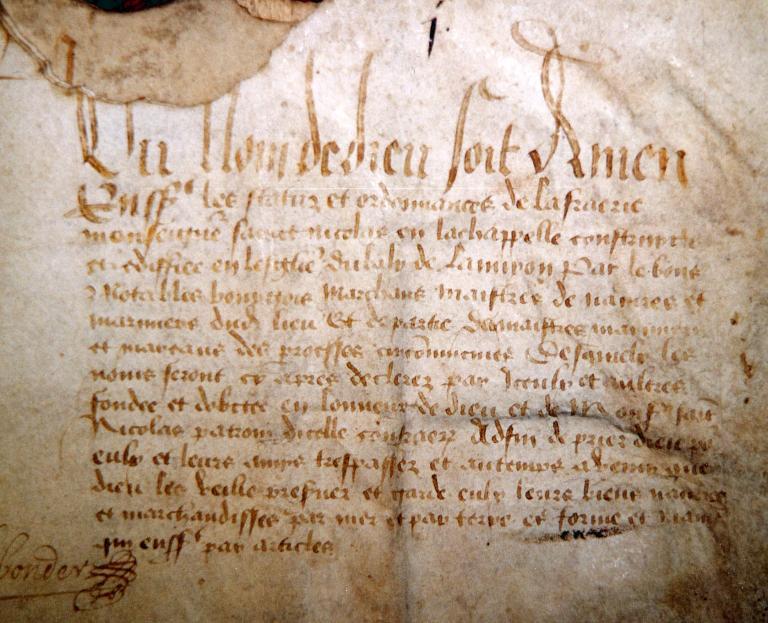 Ou Nom de dieu soit Amen
Ensst les statuz et ordonnances de la frarie
monseigneur sainct nicolas en la chappelle construicte
et ediffiee en lesglise du baly de Lannyon Par le bons
et Notables bourgois Marchans maistres de navires et
mariniers dud lieu Et de partie des maistres mariniers
et marcans des proesses circonvenies Desquelx les
noms seront cy apres declerez par Iceulx et aultres
fondee et dobtee en lonneur de dieu et de Monsr sainct
Nicolas patron dicelle confraerie Adfin de prier dieu po
eulx et leurs amys trespassez et au temps a venir que
dieu les veille preserver et garde eulx leurs biens navires
et marchandisses par mer et par terre en forme et mani
qui ensst par articles